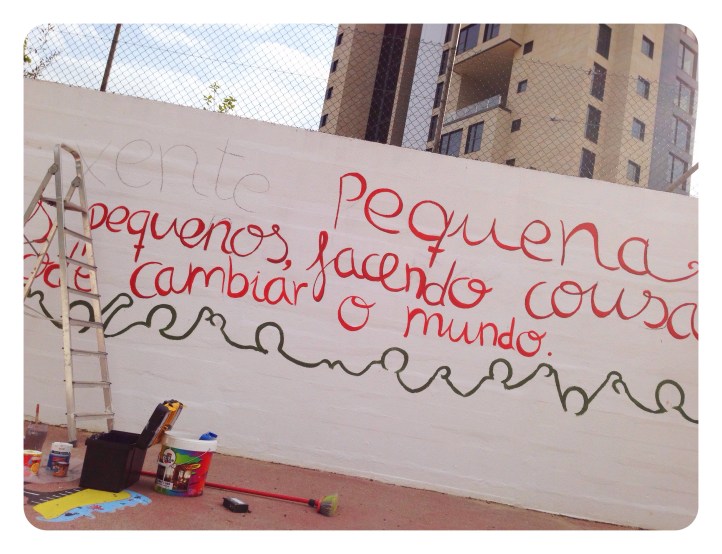 xente pequena,
pequenos, facendo cousa
cambiar o mundo.